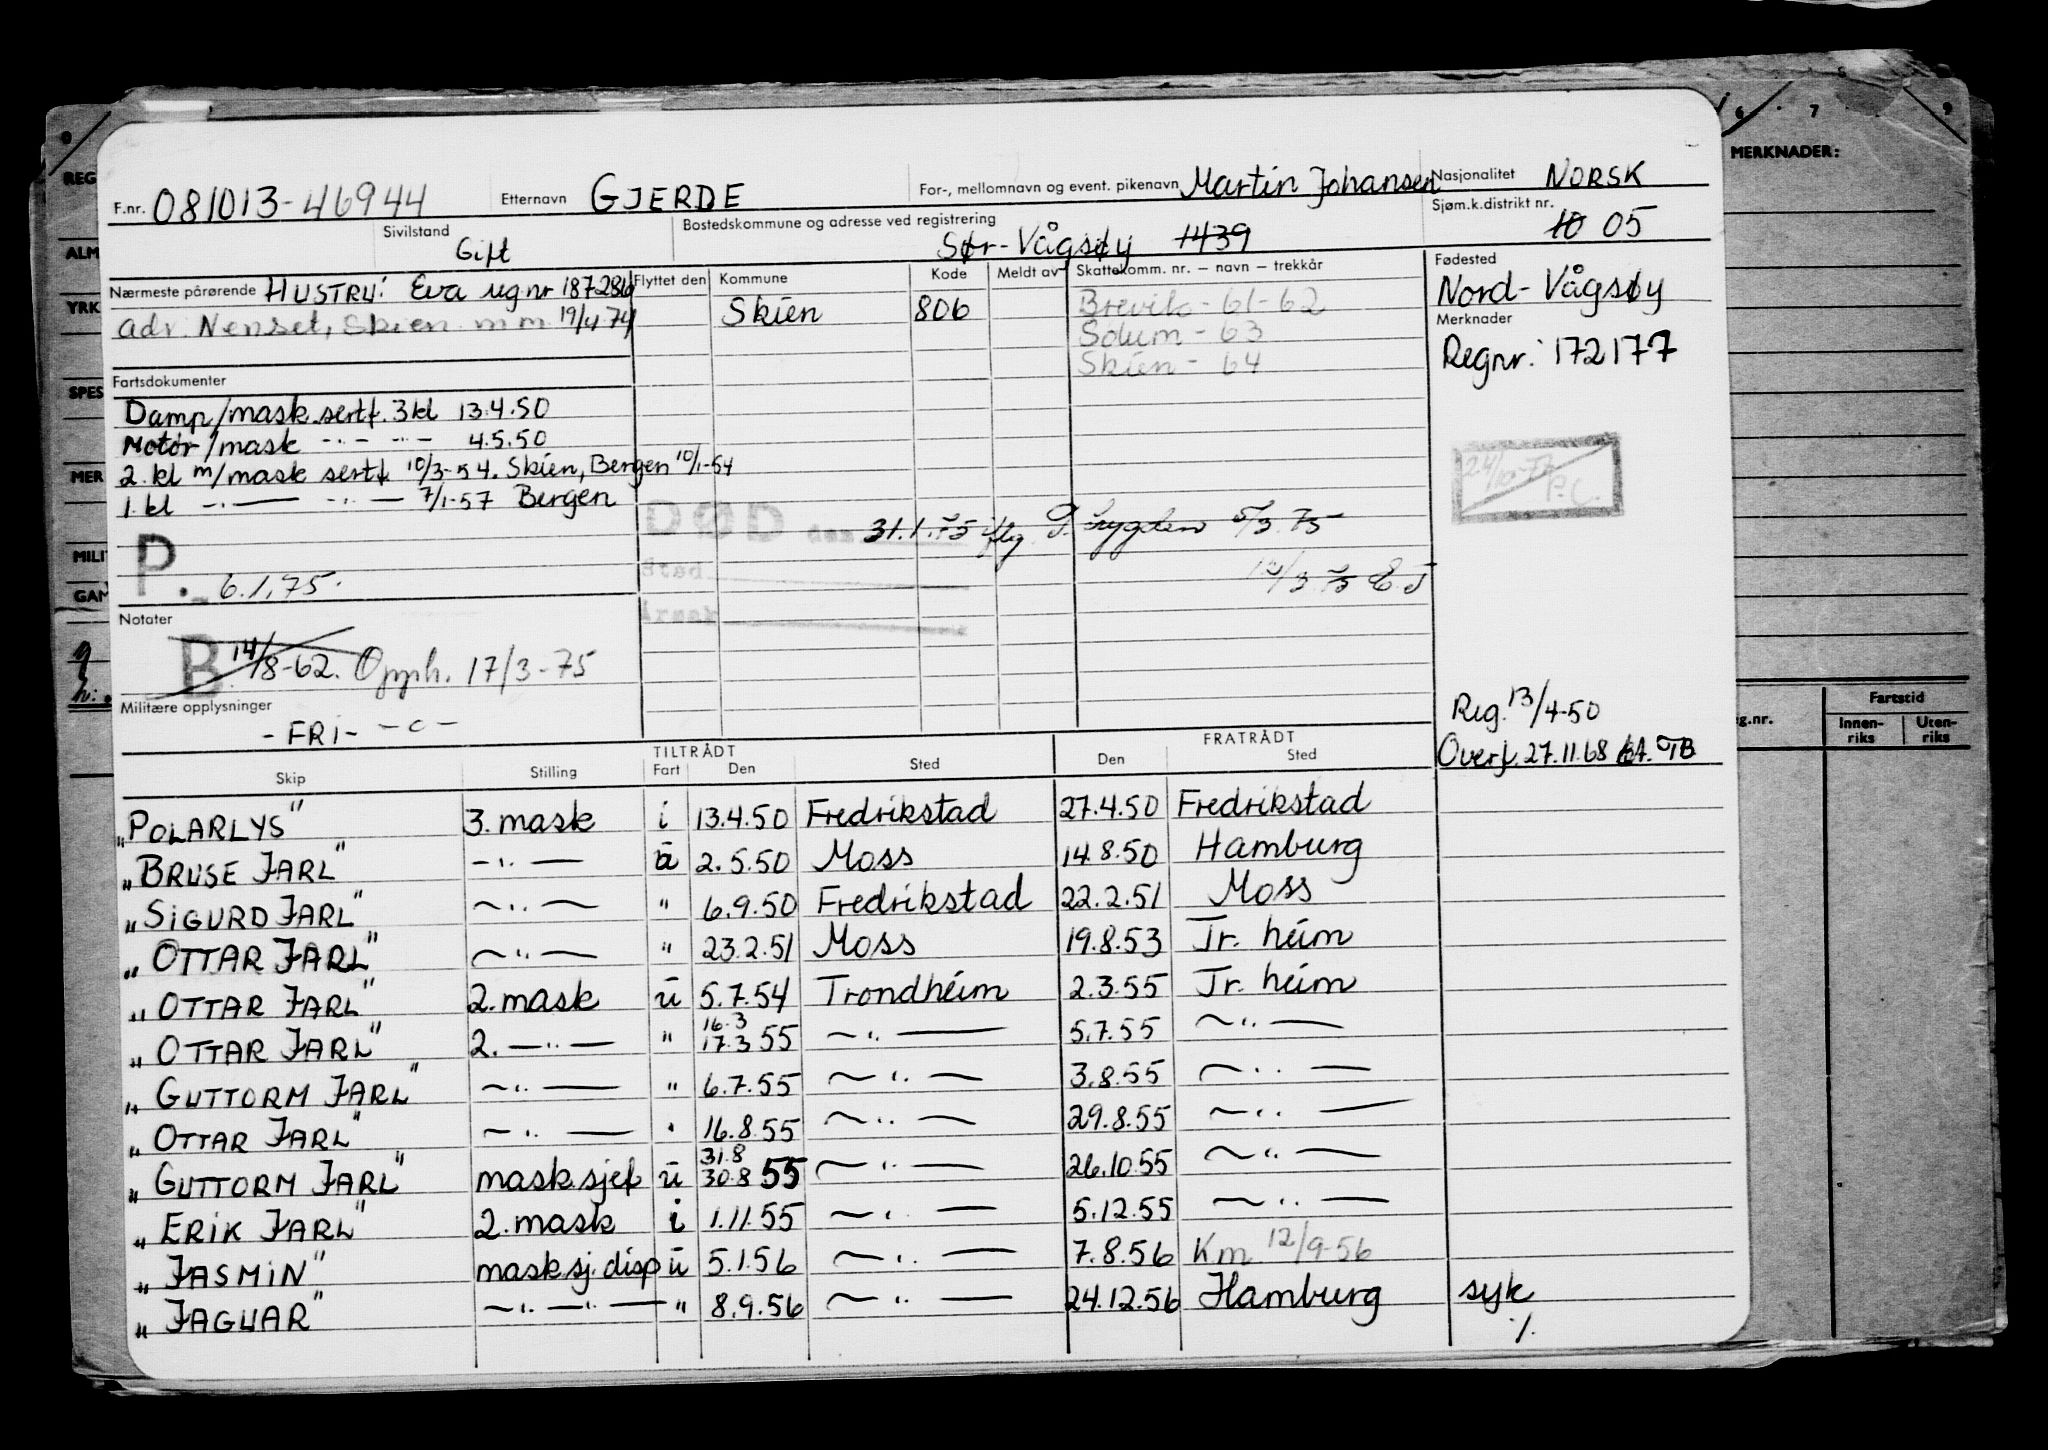 6 7 8 9
MERKNADER:
F.nr. 081013-46944 Etternavn GJERDE For-, mellomnavn og event. pikenavn Martin Johansen Nasjonalitet NORSK
Sivilstand Gift Bostedskommune og adresse ved registrering Sør-Vågsøy 1439 Sjøm.k.distrikt nr. 10 05
Nærmeste pårørende HUSTRU: Eva reg nr 187286 Flyttet den Kommune Kode Meldt av Skattekomm. nr. — navn — trekkår Fødested
adr. Nenset, Skien m m 19/4 74 Skien 806 Brevik - 61-62 Nord-Vågsøy
Solum - 63 Merknader
Skien - 64 Regnr: 172177
Fartsdokumenter
Damp/mask.sertf. 3 kl 13.4.50
Motor/mask —"— —"— 4.5.50
2. kl m/mask sertf 10/3-54. Skien, Bergen 10/1-54
1. kl —"— —"— 7/1-57 Bergen
24/10-
P.C.
DØD den 31.1.75 iflg trygden 5/3 75
P. 6.1.75.
Sted 3 75
Årsak
Notater
B 14/8-62. Opph. 17/3-75
Militære opplysninger
-FRI- -c-
Reg. 13/4-50
Overf. 27.11.68 TB
TILTRÅDT FRATRÅDT
Skip Stilling Fart Den Sted Den Sted
„POLARLYS" 3. mask i 13.4.50 Fredrikstad 27.4.50 Fredrikstad
„BRUSE JARL" —"— u 2.5.50 Moss 14.8.50 Hamburg
„SIGURD JARL" —"— " 6.9.50 Fredrikstad 22.2.51 Moss
„OTTAR JARL" —"— " 23.2.51 Moss 19.8.53 Tr. heim
„OTTAR JARL" 2. mask u 5.7.54 Trondheim 2.3.55 Tr. heim
„OTTAR JARL" 2. —"— " 16.3 17.3 55 —"— 5.7.55 —"—
„GUTTORM JARL" —"— " 6.7.55 —"— 3.8.55 —"—
„OTTAR JARL" —"— " 16.8.55 —"— 29.8.55 —"—
„GUTTORM JARL" mask.sjef u 31.8 30.8 55 —"— 26.10.55 —"—
„ERIK JARL" 2. mask i 1.11.55 —"— 5.12.55 —"—
„JASMIN" mask sj. disp u 5.1.56 —"— 7.8.56 Km 12/9-56
„JAGUAR" —"—"— " 8.9.56 —"— 24.12.56 Hamburg syk
./.
REG
ALM
YRK
SPES
MER
MILIT
GAM
g.nr. Fartstid
Innen-riks Uten-riks